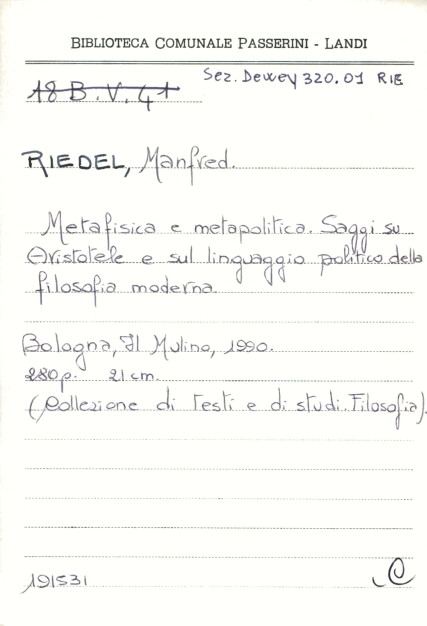 BIBLIOTECA COMUNALE PASSERINI - LANDI
Sez. Dewey 320.01 RIE
18 B.V. 41
RIEDEL, Manfred.
Metafisica e metapolitica. Saggi su
Aristotele e sul linguaggio politico della
filosofia moderna.
Bologna, Il Mulino, 1990.
280 p. 21 cm.
(Collezione di Testi e di studi. Filosofia).
191531